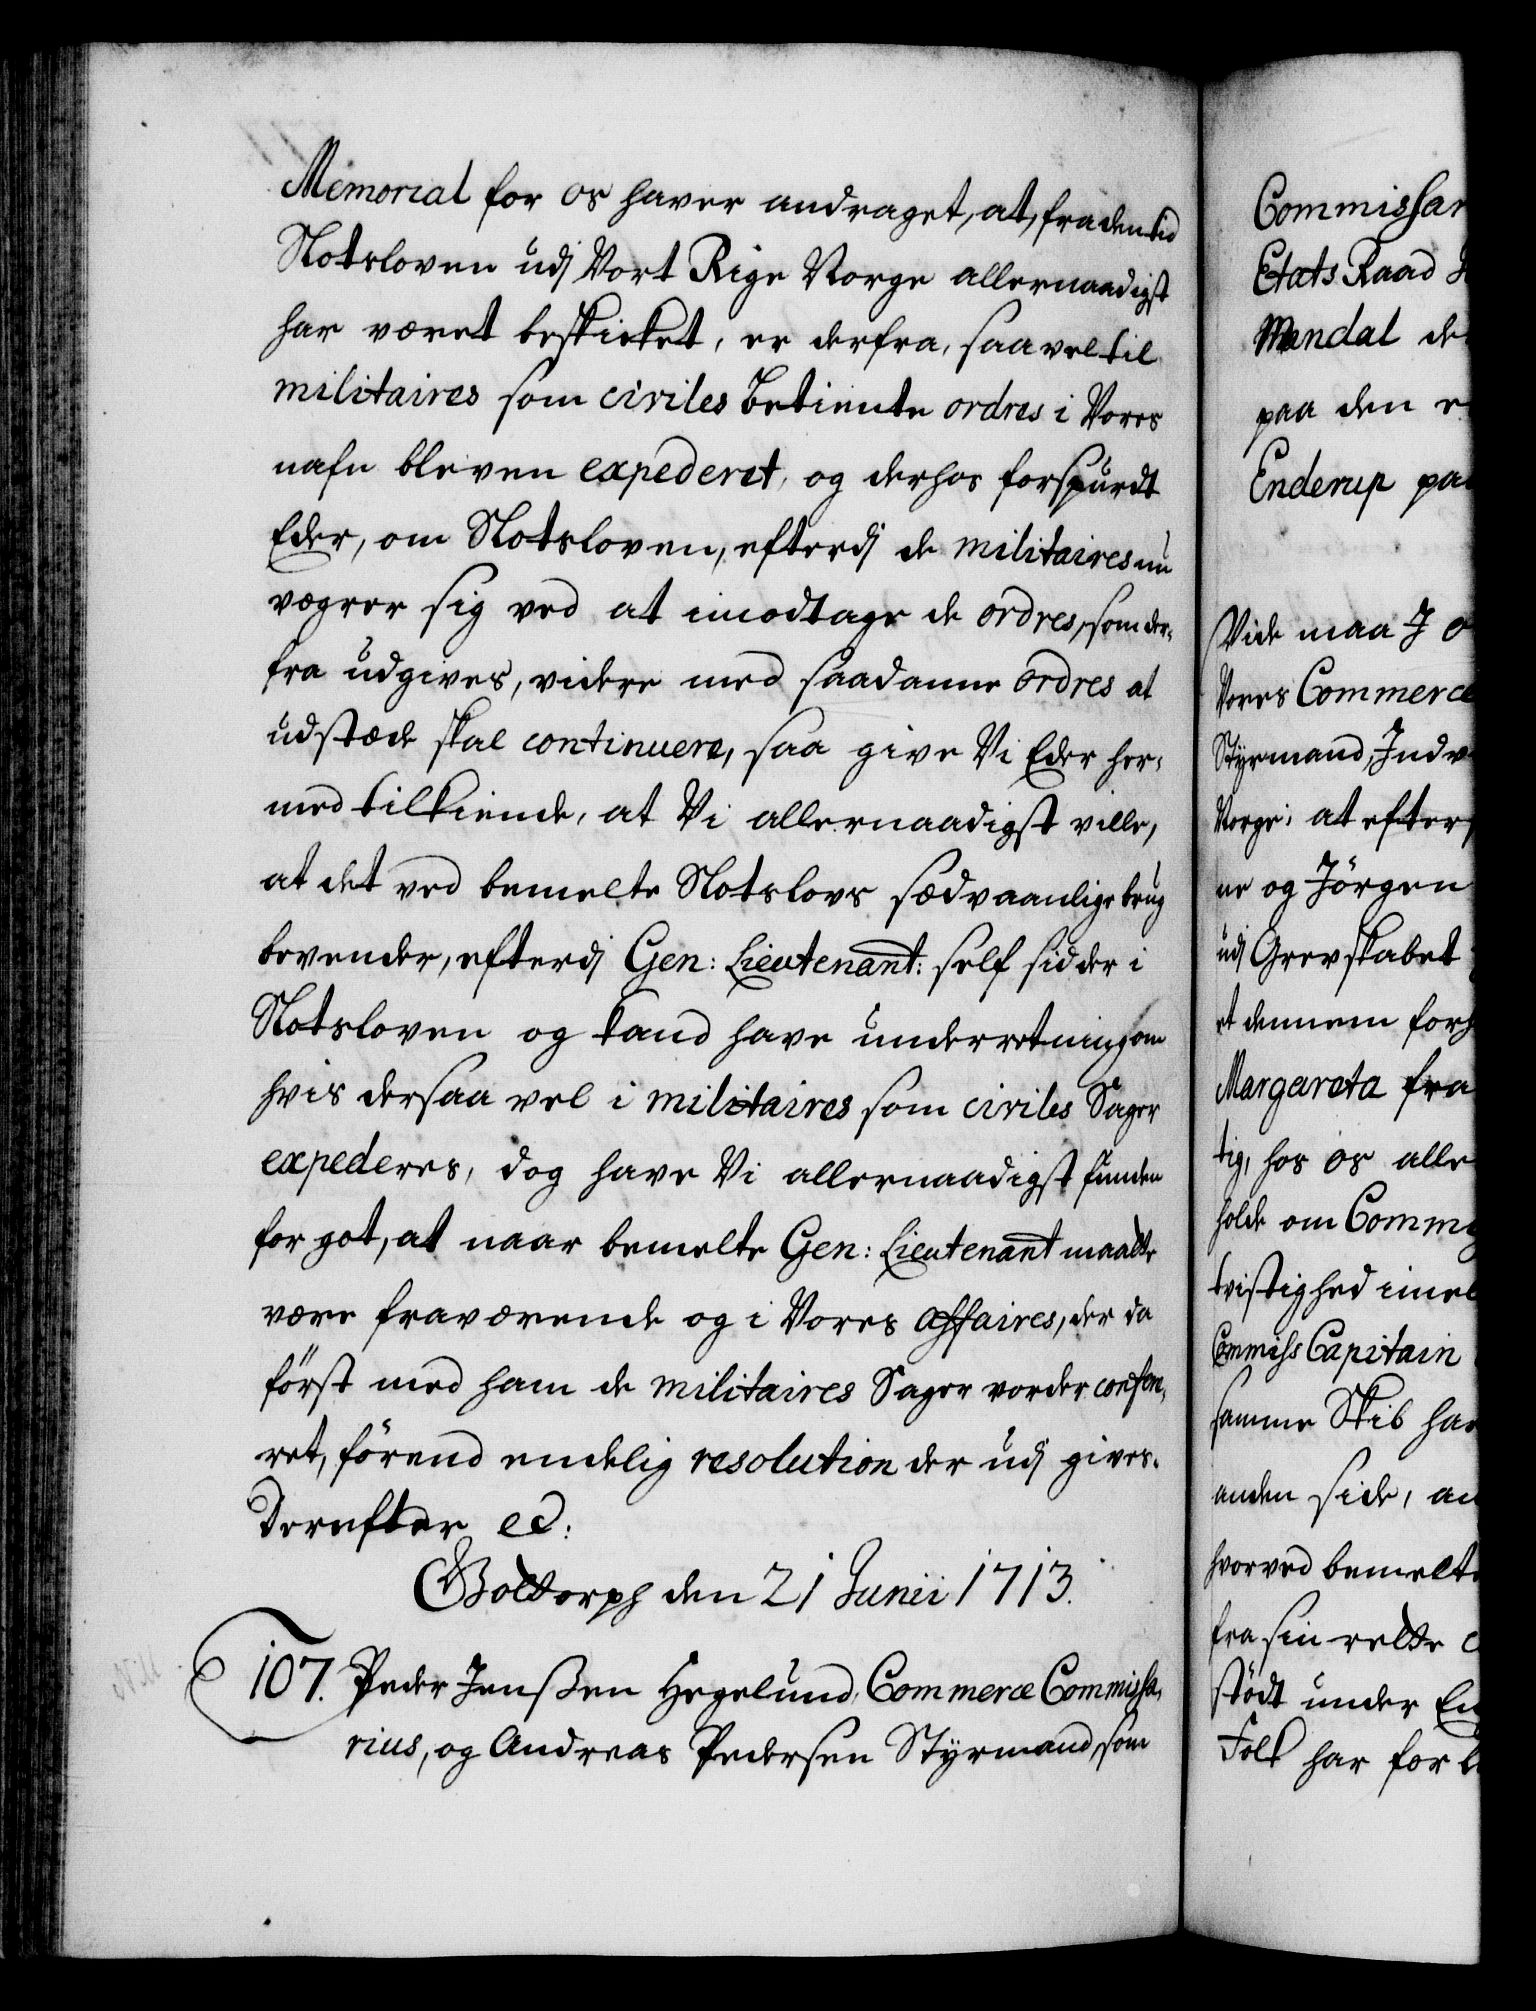 Memorial for os haver andraget, at, fra den tid
Slotsloven udj Vort Rige Norge allernaadigst
har været beskicket, er derfra, saa vel til
militaires som civiles betiente ordres i Vores
nafn bleven expederet, og derhos forspurdt
Eder, om Slotsloven, efterdj de militaires nu
vegrer sig ved at imodtage de ordres, som der-
fra udgives, videre med saadanne ordres at
udstæde skal continuere, saa give Vi Eder her-
med tilkiende, at Vi allernaadigst ville,
at det ved bemelte Slotslovs sædvaanlige brug
bevender, efterdj Gen: Lieutenant: self sidder i
Slotsloven og kand have underretning om
hvis der saa vel i militaires som civiles Sager
expederes, dog have Vi allernaadigst funden
for got, at naar bemelte Gen: Lieutenant maatte
være fraværende og i Vores affaires, der da
först med ham de militaires Sager vorder confe-
ret, förend endelig resolution der udj gives.
Derefter ec:
Gottorph den 21 Junii 1713.
107. Peder Jenßen Hegelund, Commerce Commissa-
rius, og Andreas Pedersen Styrmand, som
Commissar
Etats Raad
Mandal de
paa den
Enderup paa
Vide maa J
Vores Commerce
Styrmand, Indv
Norge: at efter
ne og Jörgen
udj Grevskabet
et dennem forh
Margareta fra
tig, hos os alle
holde om Comm
tvistighed imel
Commiss Capitain
samme Skib har
anden side, an
hvorved bemelte
fra sin rette
stödt under En
Folk har for